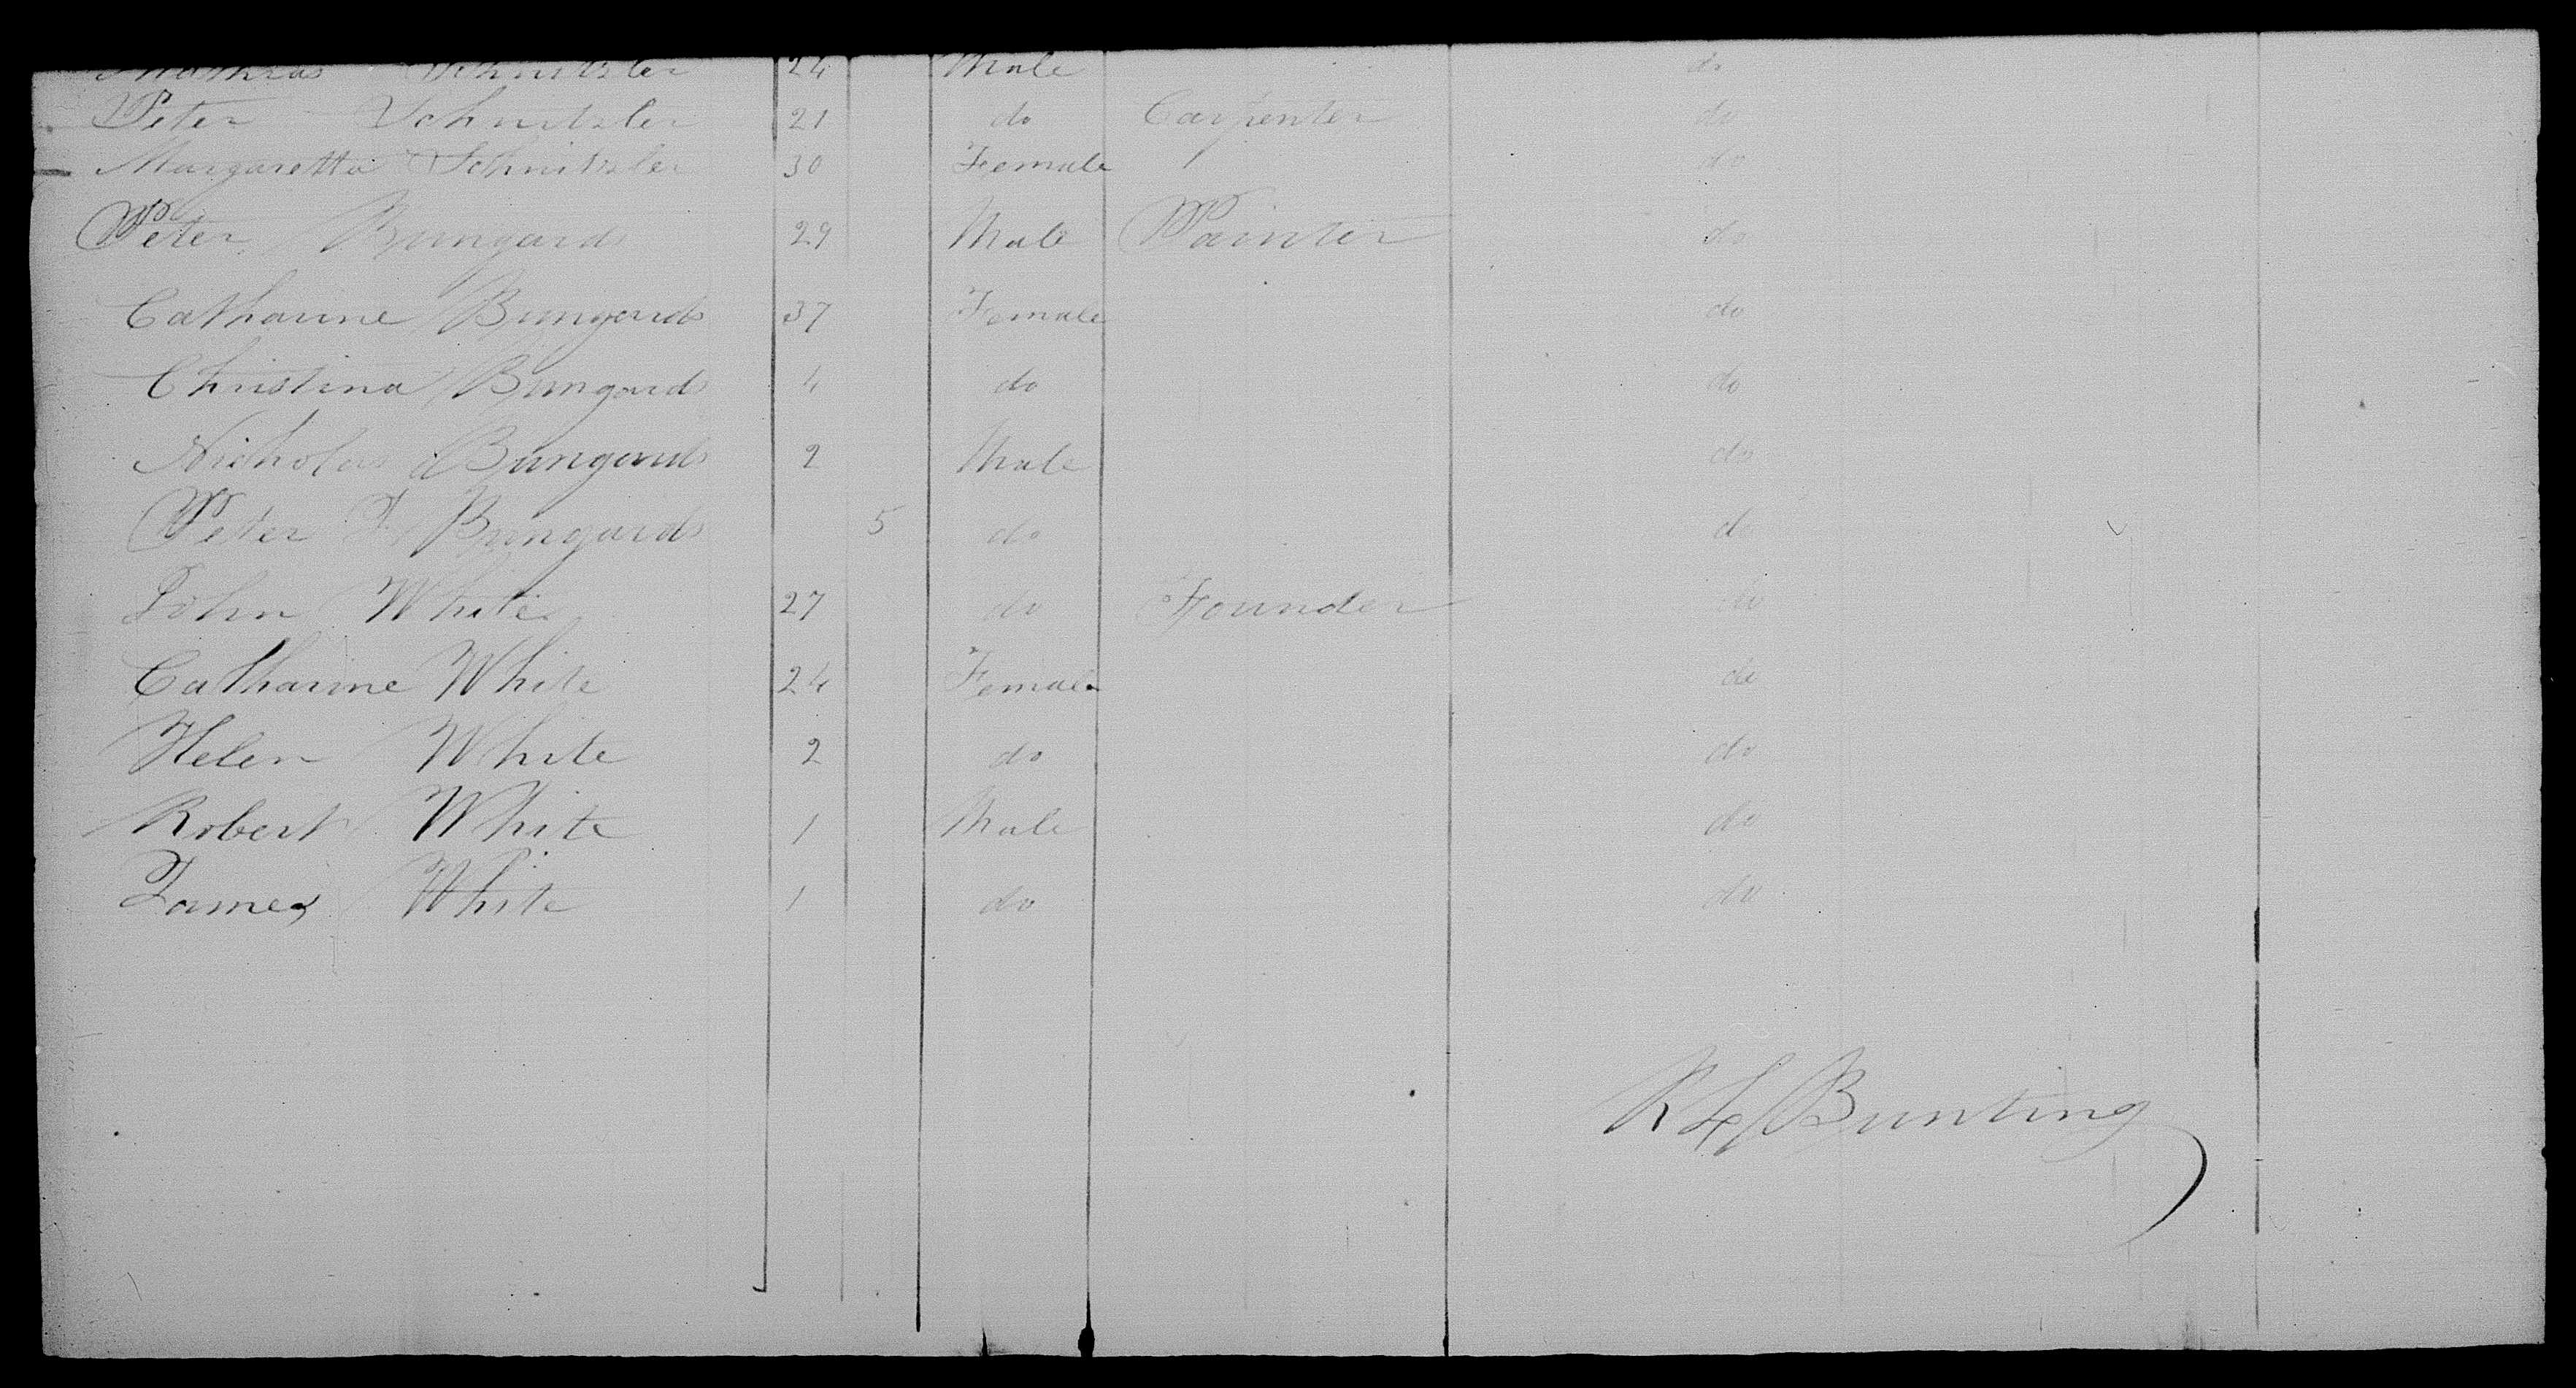 Mathias Schnitzler 24 Male do
Peter Schnitzler 21 do Carpenter do
Margaretta Schnitzler 30 Female do
Peter Bungard 29 Male Painter do
Catharine Bungards 37 Female do
Christina Bungards 4 do do
Nicholas Bungards 2 Male do
Peter J. Bungards 5 do do
John White 27 do Founder do
Catharine White 24 Female do
Helen White 2 do do
Robert White 1 Male do
James White 1 do do
R L Bunting